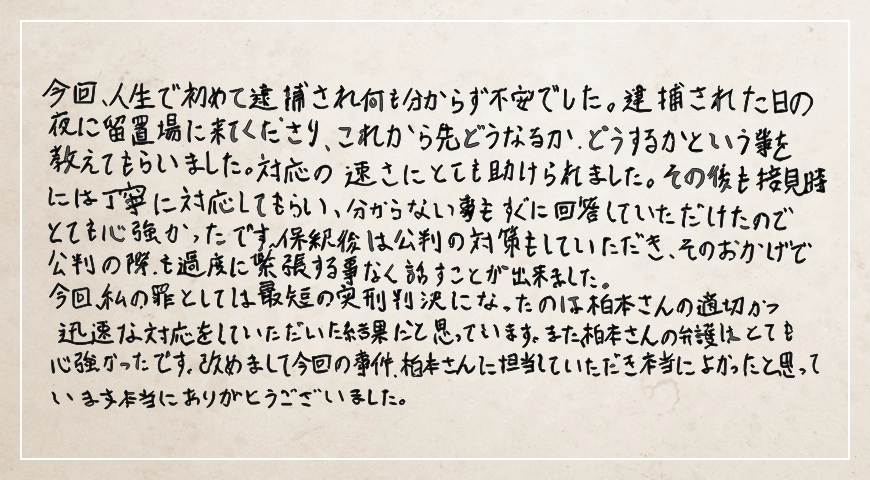 今回、人生で初めて逮捕され何も分からず不安でした。逮捕された日の
夜に留置場に来てくださり、これから先どうなるか、どうするかという事を
教えてもらいました。対応の速さにとても助けられました。その後も接見時
には丁寧に対応してもらい、分からない事もすぐに回答していただけたので
とても心強かったです。保釈後は公判の対策もしていただき、そのおかげで
公判の際も過度に緊張する事なく話すことが出来ました。
今回、私の罪としては最短の実刑判決になったのは柏本さんの適切かつ
迅速な対応をしていただいた結果だと思っています。また柏本さんの弁護はとても
心強かったです。改めまして今回の事件、柏本さんに担当していただき本当によかったと思って
います本当にありがとうございました。